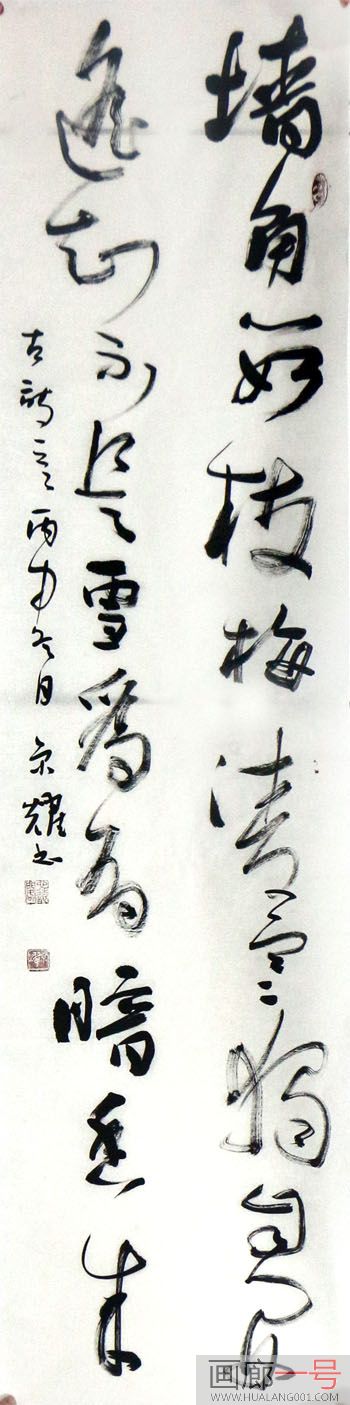 墙角数枝梅凌寒独自开
遥知不是雪為有暗香来
古诗丙申冬月京耀书
画廊一号
WWW.HUALANG001.COM